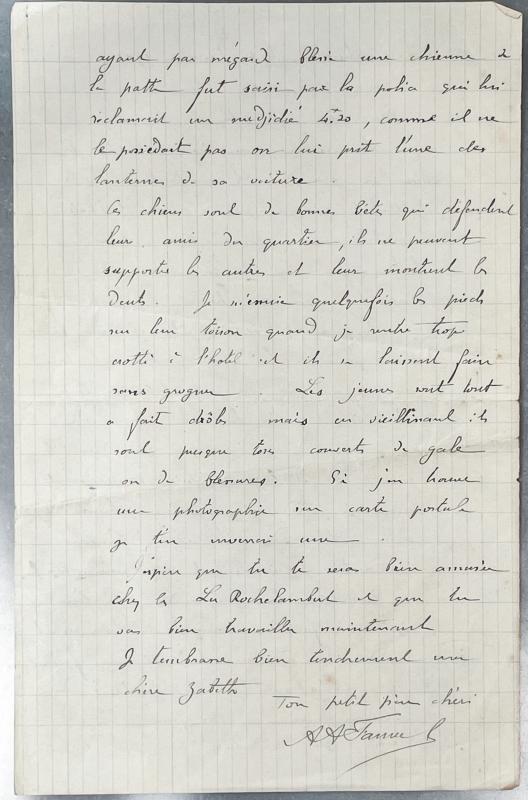 ayant par mégard blessé une chienne à
la patte fut saisi par la police qui lui
réclamait un medjidié 4.20, comme il ne
le possédait pas on lui prit l'une des
lanternes de sa voiture.
Ces chiens sont de bonnes bêtes qui défendent
leur amis du quartier, ils ne peuvent
supporter les autres et leur montrent les
dents. Je m'essuie quelquefois les pieds
sur leur toison quand je rentre trop
crotté à l'hotel et ils se laissent faire
sans grogner. Les jeunes sont tout
a fait drôles mais en vieillissant ils
sont presque tous couverts de gale
ou de blessures. Si j'en trouve
une photographie sur carte postale
je t'en enverrai une.
J'espère que tu te seras bien amusée
chez les La Rochelambert et que tu
vas bien travailler maintenant
Je t'embrasse bien tendrement ma
chère Zabeth
Ton petit père chéri